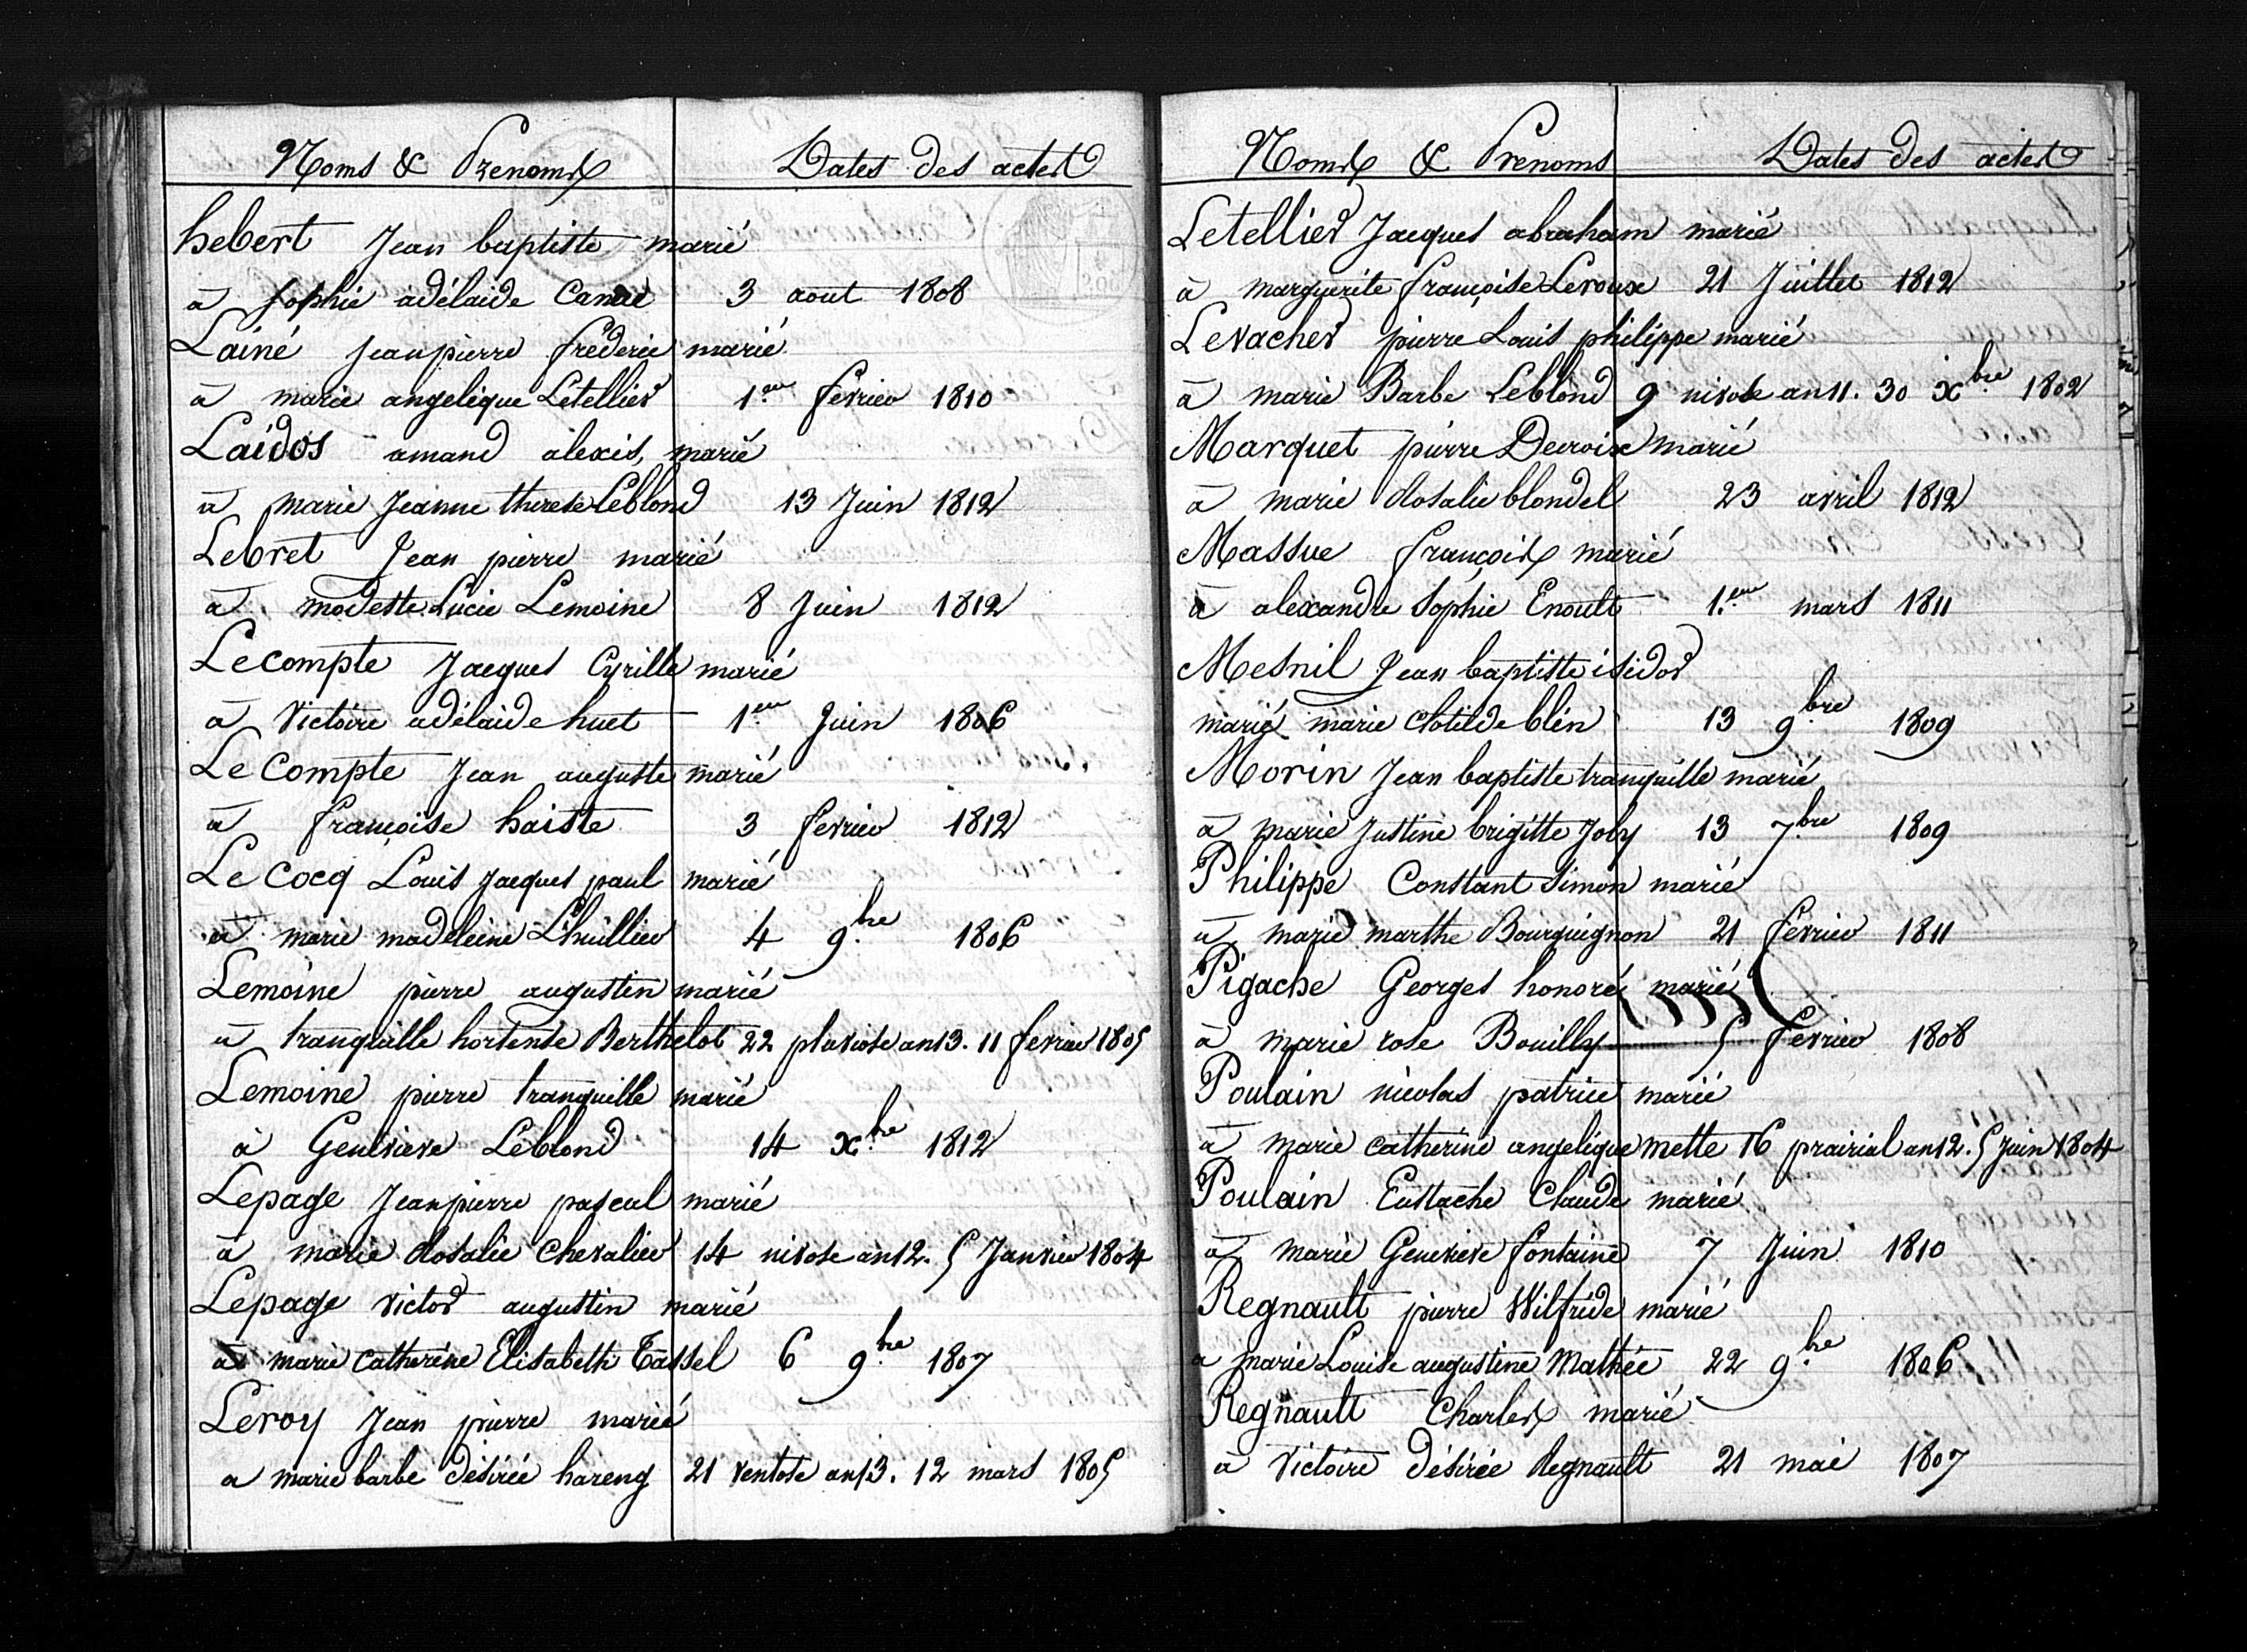 Noms & Prenoms Dates des actes
hebert Jean baptiste marié
à Sophie adélaide Canue 3 aout 1808
Lainé Jean pierre frédéric marié
à marie angelique Letellier 1er fevrier 1810
Laidos amand alexis, marié
à marie Jeanne therese Leblond 13 Juin 1812
Lebret Jean pierre marié
à modeste Lucie Lemoine 8 Juin 1812
Lecompte Jacques Cyrille marié
à Victoire adélaide huet 1er Juin 1806
Le Compte Jean auguste marié
à françoise haiste 3 fevrier 1812
Le Cocq Louis Jacques paul marié
à marie madeleine L'huillier 4 9.bre 1806
Lemoine pierre augustin marié
à tranquille hortense Berthelot 22 pluviose an 13. 11 fevrier 1805
Lemoine pierre tranquille marié
à Genevieve Leblond 14 x.bre 1812
Lepage Jean pierre pascal marié
à marie Rosalie Chevalier 14 nivose an 12. 5 Janvier 1804
Lepage victor augustin marié
à marie Catherine Elisabeth Tassel 6 9.bre 1807
Leroy Jean pierre marié
a marie barbe désirée hareng 21 ventose an 13. 12 mars 1805
Noms & Prenoms Dates des actes
Letellier Jacques abraham marié
à marguerite françoise Leroux 21 Juillet 1812
Levacher pierre Louis philippe marié
à marie Barbe Leblond 9 nivose an 11. 30 xbre 1802
Marquet pierre Decroix marié
à marie Rosalie blondel 23 avril 1812
Massue françois marié
à alexandre Sophie Enoult 1.er mars 1811
Mesnil Jean baptiste isidor
marié marie clotilde blin 13 9.bre 1809
Morin Jean baptiste tranquille marié
à marie Justine brigitte Joby 13 7.bre 1809
Philippe Constant Simon marié
à marie marthe Bourguignon 21 fevrier 1811
Pigache Georges honoré marié
à marie rose Bouilly 5 fevrier 1808
Poulain nicolas patrice marié
à marie catherine angelique mette 16 prairial an 12. 5 Juin 1804
Poulain Eustache Claude marié
à marie Genevieve fontaine 7 Juin 1810
Regnault pierre Wilfride marié
a marie Louise augustine Mathée 22 9.bre 1806
Regnault Charles marié
à Victoire désirée Regnault 21 mai 1807